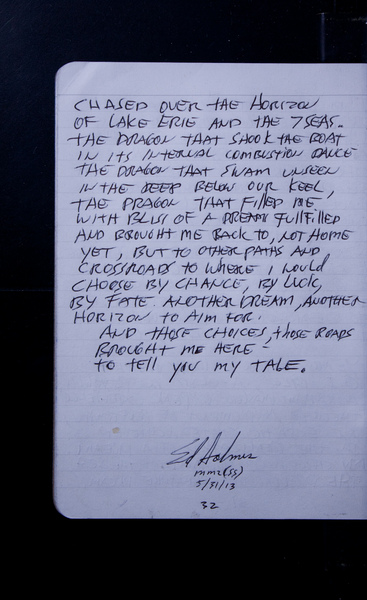 CHASED OVER THE HORIZON
OF LAKE ERIE AND THE 7 SEAS.
THE DRAGON THAT SHOOK THE BOAT
IN ITS INTERNAL COMBUSTION DANCE
THE DRAGON THAT SWAM UNSEEN
IN THE DEEP BELOW OUR KEEL,
THE DRAGON THAT FILLED ME
WITH BLISS OF A DREAM FULFILLED
AND BROUGHT ME BACK TO, NOT HOME
YET, BUT TO OTHER PATHS AND
CROSSROADS TO WHERE I WOULD
CHOOSE BY CHANCE, BY LUCK,
BY FATE. ANOTHER DREAM, ANOTHER
HORIZON TO AIM FOR.
AND THOSE CHOICES, THOSE ROADS
BROUGHT ME HERE -
TO TELL YOU MY TALE.
Ed Holmes
MM2(SS)
5/31/13
32